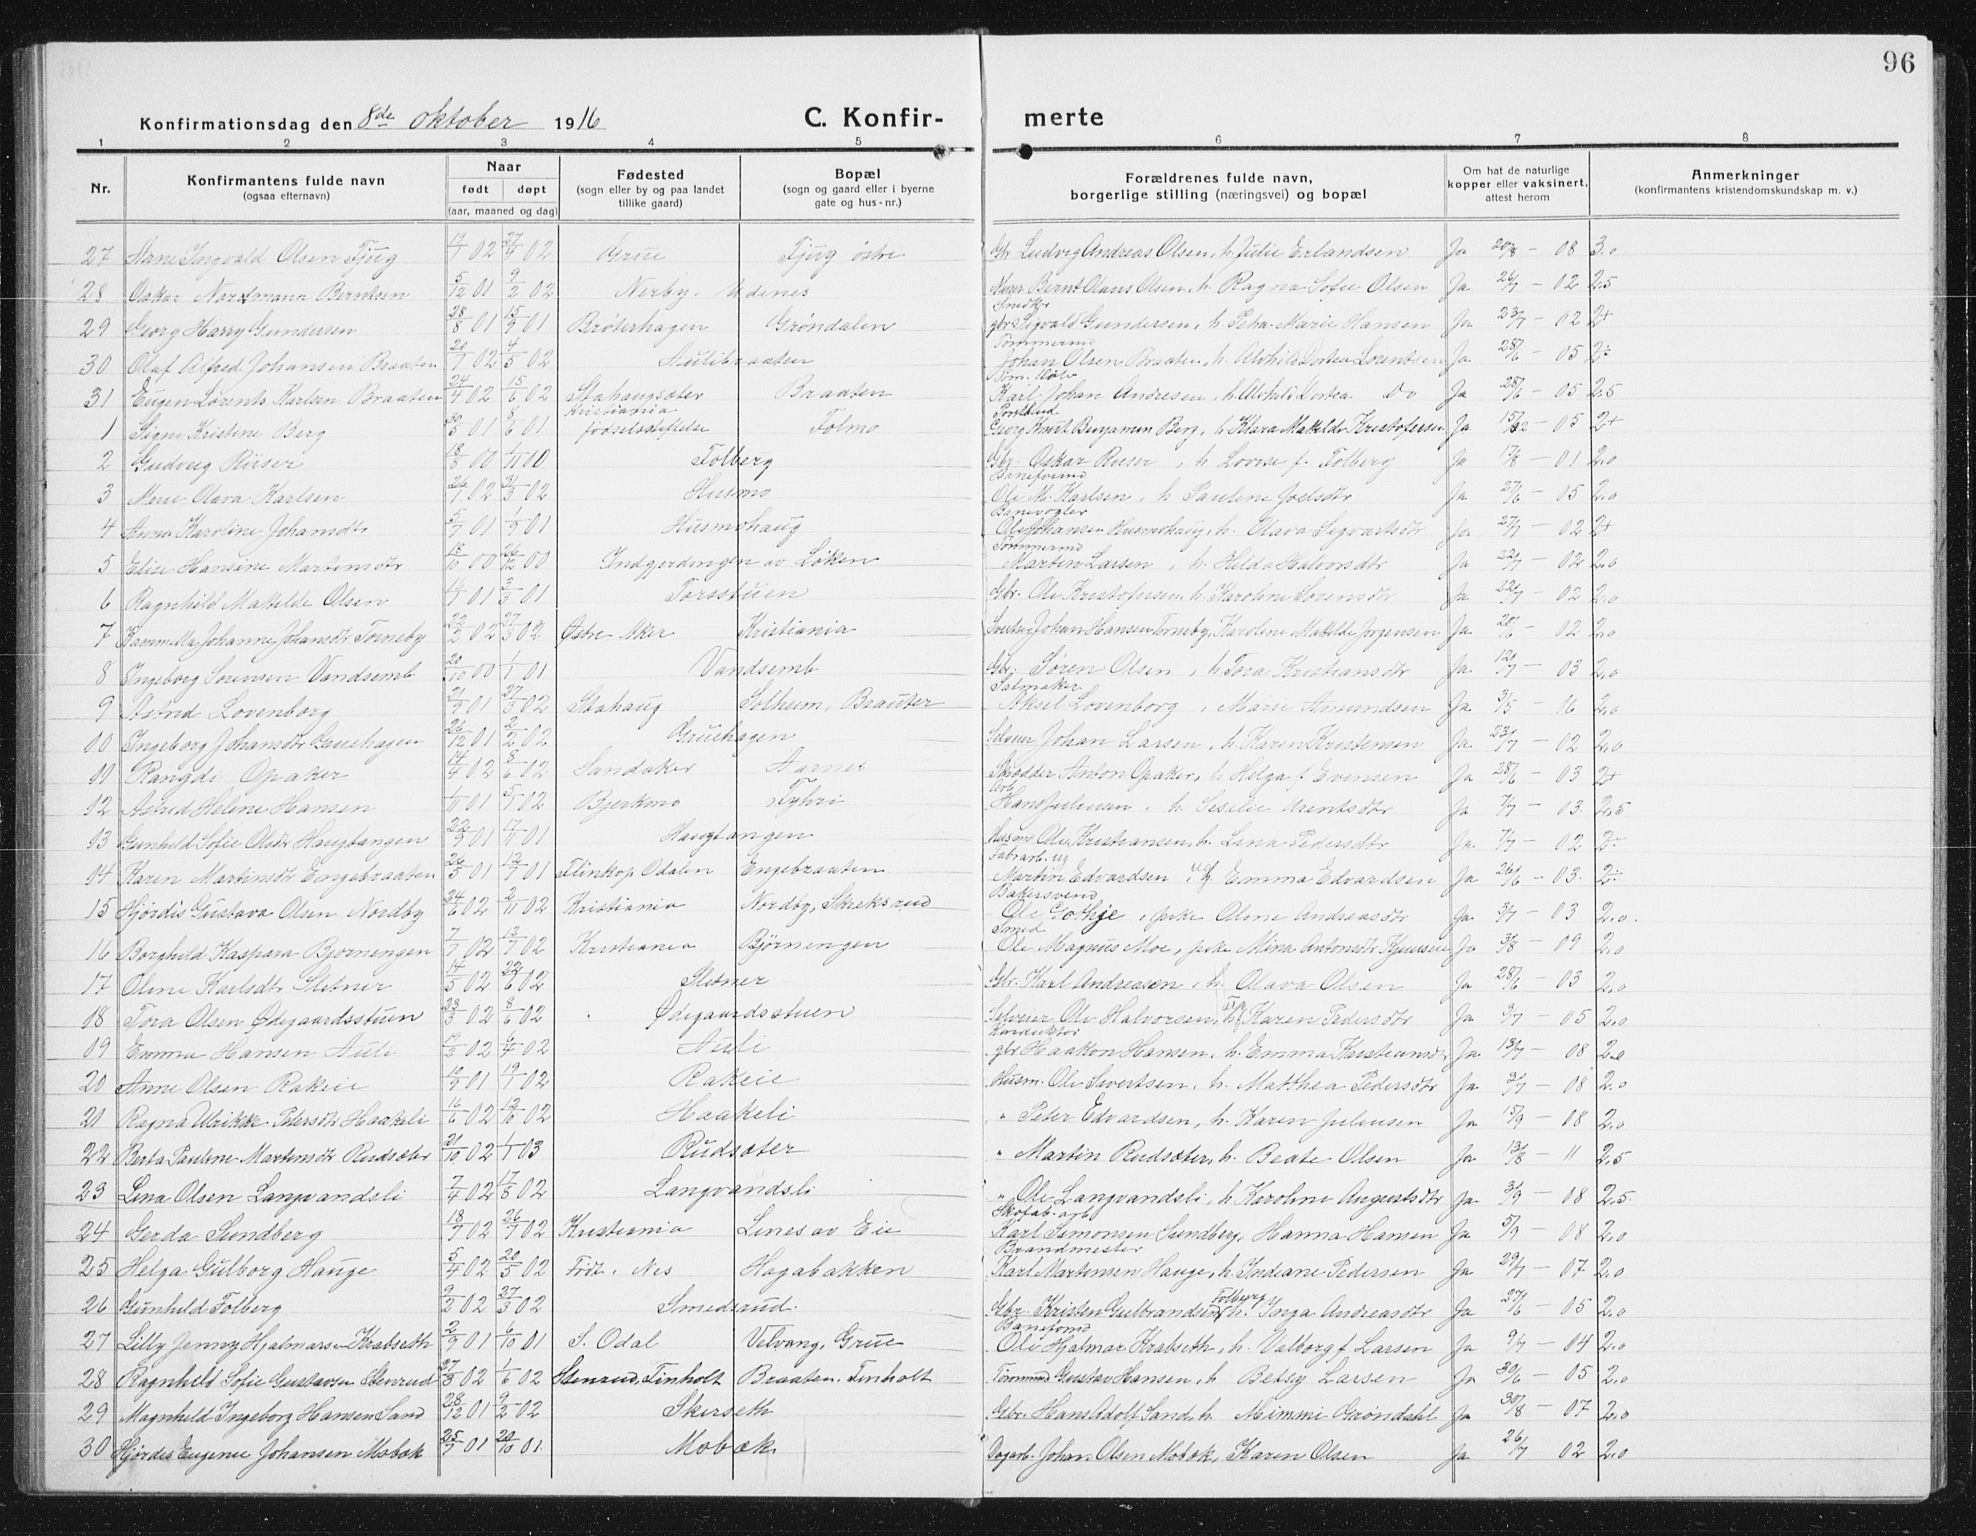 96
Konfirmationsdag den 8de oktober 1916 C. Konfir- merte
1 2 3 4 5 6 7 8
Nr. Konfirmantens fulde navn (ogsaa efternavn) Naar født døpt (aar, maaned og dag) Fødested (sogn eller by og paa landet tillike gaard) Bopæl (sogn og gaard eller i byerne gate og hus-nr.) Forældrenes fulde navn, borgerlige stilling (næringsvei) og bopæl Om hat de naturlige kopper eller vaksinert, attest herom Anmerkninger (konfirmantens kristendomskundskap m. v.)
27 Arne Ingvald Olsen Fjug 19/1 02 27/4 02 Grue Fjug østre Gbr Ludvig Andreas Olsen, h. Julie Erlandsen Ja 20/8 - 08 3.0
28 Oskar Nordmann Berntsen 5/12 01 9/2 02 Nerby. Udenes Murer Bernt Olaus Olsen, h. Ragna Sofie Olsen Ja 26/7 - 02 2.5
29 Georg Harry Gundersen 28/8 01 15/9 01 Brøterhagen Grøndalen Smedkr gbr Sigvald Gundersen, h. Petra Marie Hansen Ja 23/7 - 02 2+
30 Olaf Alfred Johansen Braaten 20/1 02 4/5 02 Aulibraaten Tømmermd Johan Olsen Braaten, h. Alvhild Dortea Lorentsen Ja 28/6 - 05 2÷
31 Eugen Lorents Karlsen Braaten 24/4 02 15/6 02 Stahaugsæter Braaten Karl Johan Andresen, h. Alvhild Dortea Do Ja 28/6 - 05 2,5
1 Signe Kristine Berg 30/5 01 8/6 01 Kristiania fødselsstiftelse Folmo Postbud Georg Knut Benjamin Berg, h. Klara Matilde Kristofersen Ja 15/12 - 05 2+
2 Gudveig Riiser 18/8 00 1/11 00 Folberg Gbr. Oskar Riiser, h. Lovise f. Folberg Ja 17/8 - 01 2.0
3 Marie Olava Karlsen 26/1 02 31/3 02 Husmo Baneformd Ole M. Karlsen, h. Pauline Joelsdtr Ja 27/6 - 05 2.0
4 Anna Karoline Johansdtr 5/7 01 1/9 01 Husmohaug Banevogter Ole Johansen Husmohaug, h. Olava Sigvartsdtr Ja 27/7 - 02 2+
5 Elise Hansine Martinsdtr 18/10 00 26/12 00 Indgjerdingen av Løken Tømmermd Martin Larsen, h. Hilda Halvorsdtr Ja 22/7 - 02 2.0
6 Ragnhild Matilde Olsen 16/1 01 3/3 01 Torsstuen Gbr. Ole Kristofersen, h. Karoline Sorensdtr Ja 22/7 - 02 2.0
7 Kammilla Johanne Johansdtr Torneby 22/2 02 27/3 02 Østre Aker Kristiania Johan Hansen Torneby, Karoline Matilde Jorgensen Ja 20/6 - 02 2.0
8 Ingeborg Sorensen Vandsemb 20/10 00 1/1 01 Vandsemb Gbr. Søren Olsen, h. Tora Kristiansdtr Ja 12/7 - 03 2.0
9 Astrid Lovenborg 21/9 01 27/3 02 Stahaug Solheim, Brauter Salmaker Aksel Lovenborg, Marie Amundsen Ja 3/5 - 16 2.0
10 Ingeborg Johansdtr Gruehagen 26/12 01 2/2 02 Gruehagen Selveier Johan Larsen, h. Karen Kristensen Ja 23/7 - 02 2.0
11 Rangdi Opaker 14/4 02 8/6 02 Sandaker Aarnes Skrædder Anton Opaker, h. Helga f. Evensen Ja 28/6 - 03 2+
12 Astrid Helene Hansen 1/11 01 5/1 02 Bjerkmo Fyhri Arb Hans Juliusen, h. Seselie Arentsdtr Ja 7/7 - 03 2.5
13 Gunhild Sofie Olsdtr Haugtangen 22/9 01 17/1 01 Haugtangen Husmd Ole Kristiansen, h. Lina Pedersdtr Ja 7/7 - 02 2÷
14 Karen Martinsdtr Engebraaten 26/5 01 12/7 01 Flinkop. Odalen Engebraaten Fabrarb. ug Martin Edvardsen, ug. Emma Edvardsen Ja 26/6 - 03. 2÷
15 Hjørdis Gustava Olsen Nordby 24/6 02 2/11 02 Kristiania Nordby, Skreksrud Bakersvend Ole Gothje, pike Oline Andreasdtr Ja 3/7 - 03 2.0.
16 Borghild Kaspara Bjorningen 7/7 02 13/7 02 Kristiania Bjørningen Smed Ole Magnus Moe, pike Mina Antonsdtr Ja 3/8 - 09 2.0
17 Oline Karlsdtr Sletner 14/5 02 22/6 02 Sletner Gbr. Karl Andreasen, h. Olava Olsen Ja 28/6 - 03 2.0
18 Tora Olsen Ødegaardsstuen 23/3 02 8/6 02 Ødegaardsstuen Selveier Ole Halvorsen, h. Karen Pedersdtr Ja 3/7 - 05 2.0
19 Emma Hansen Auli 19/3 02 6/4 02 Auli Konduktør gbr Haakon Hansen, h. Emma Kristiansdtr Ja 13/7 - 08 2.0
20 Anne Olsen Rakeie 10/9 01 19/1 02 Rakeie Husm. Ole Sivertsen, h. Matthea Pedersdtr Ja 3/7 - 08 2.0
21 Ragna Ulrikke Petersdtr Haakeli 16/6 02 12/10 02 Haakeli " Peter Edvardsen, h. Karen Juliussen Ja 15/9 - 08 2.0
22 Berta Pauline Martinsdtr Rudsæter 21/10 02 1/1 03 Rudsæter " Martin Rudsæter, h. Beate Olsen Ja 13/8 - 11 2.5
23 Lina Olsen Langvandsli 7/4 02 17/8 02 Langvandsli " Ole Langvandsli, h. Karoline Augustsdtr Ja 3/9 - 08 2.5
24 Gerda Sundberg 18/7 02 26/7 02 Kristiania Linesav Eie Skofab. arb Karl Simonsen Sundberg, Hanna Hansen Ja 5/9 - 08 2.0
25 Helga Gulborg Hauge 5/4 02 20/5 02 Födt. Nes Hagabakken Brandmester Karl Martinsen Hauge, h. Indiane Pedersen Ja 29/7 - 07 2.0
26 Gunhild Folberg 9/2 02 27/3 02 Smedsrud. Gbr. Kristen Gulbrandsen Folberg h. Inga Andreasdtr Ja 27/6 - 05 2.0
27 Lilly Jenny Hjalmarsen Krabseth 2/9 01 6/10 01 S. Odal Velvang, Grue Baneformd Ole Hjalmar Krabseth, h. Valborg f Larsen Ja 9/7 - 04 2.0
28 Ragnhild Sofie Gustavsen Stenrud 27/3 02 1/6 02 Stenrud, Finholt Braaten. Finholt Tømmermd Gustav Hansen, h Betsy Larsen Ja 30/6 - 05 2.0
29 Magnhild Ingeborg Hansen Sand 28/12 01 9/2 02 Skirseth Gbr. Hans Adolf Sand, h. Mimmi Grøndahl Ja 30/8 - 07 2.0
30 Hjørdis Eugenie Johansen Mobæk 25/7 01 20/10 01 Mobæk Dagarb. Johan Olsen Mobæk, Karen Olsen Ja 26/7 02 2.0